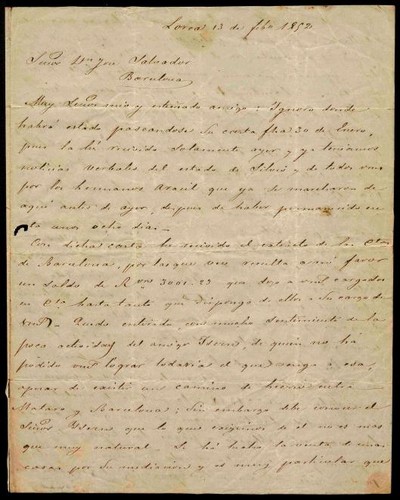 Lorca 13 de febº 1852
Señor Dn Jose Salvador
Barcelona
Muy Señor mio y estimado amigo: Ignoro donde
habrá estado paseandose su carta fha 30 de Enero,
pues la hé recivido solamente ayer y ya teniamos
noticias verbales del estado de Silvió y de todos vms
por los hermanos que ya se marcharon de
aqui antes de ayer, despues de haber permanecido en
ta unos ocho dias.
Con dicha carta he recivido el extracto de la Cta
de Barcelona, por la que veo resulta a mi favor
un saldo de Rvon 3001.23 que dejo a vm cargados
en Cta hasta tanto que disponga de ellos a su cargo de
vm - Quedo enterado con mucho sentimiento de la
poca actividad del amigo de quien no há
podido vm lograr todavia el que venga a esa,
apesar de existir un camino de hierro entre
Mataro y Barcelona; Sin embargo debe conocer el
Señor que lo que exigimos a él no es mas
que muy natural. Se há hecho la venta de una
casa por su mediacion y es muy particular que